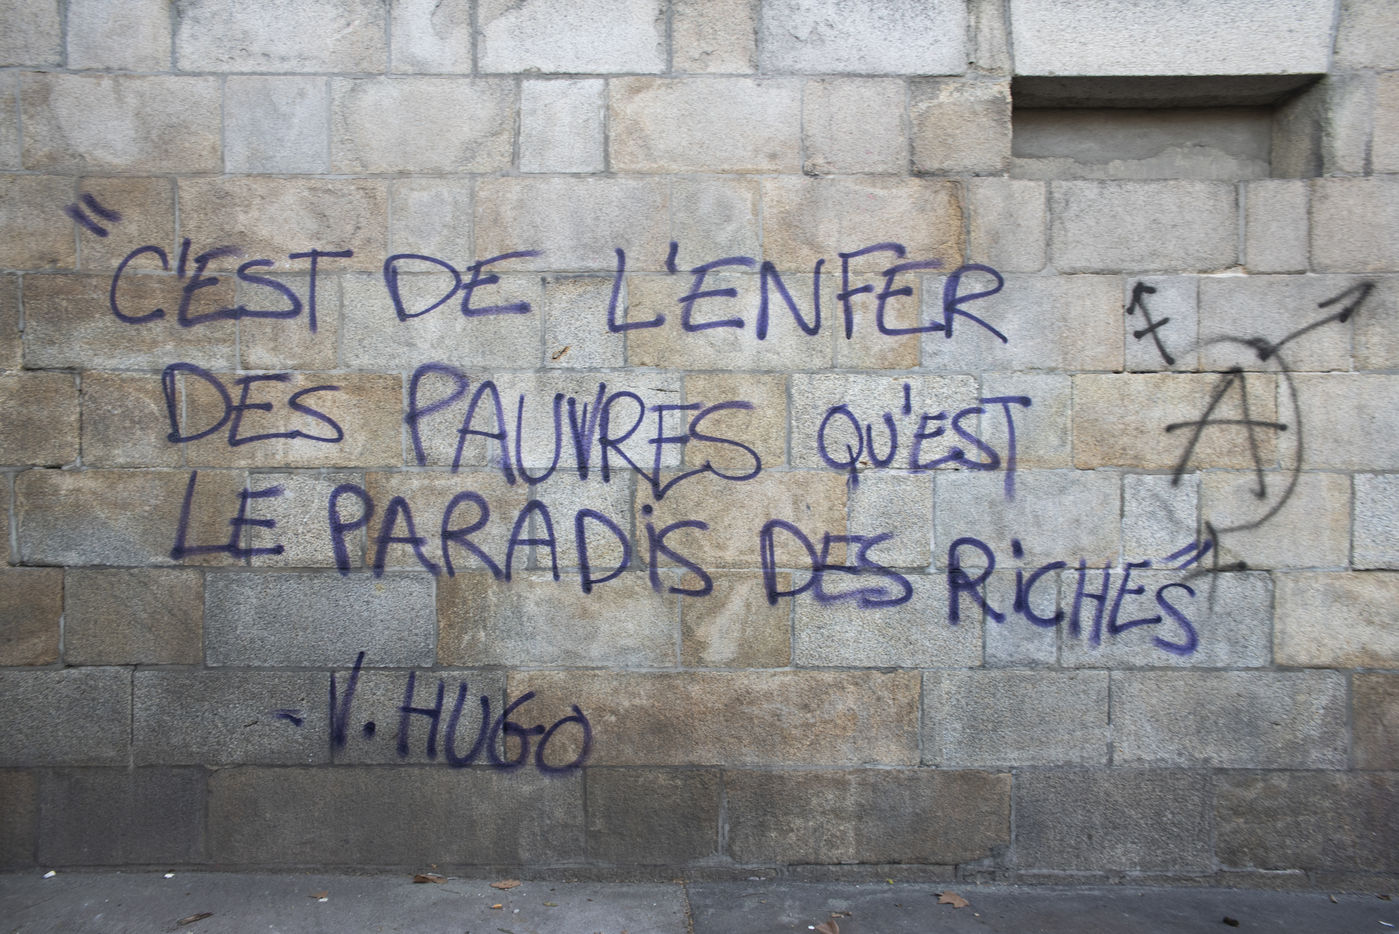 "C'EST DE L'ENFER
DES PAUVRES QU'EST
LE PARADiS DES RiCHES"
- V. HUGO
A